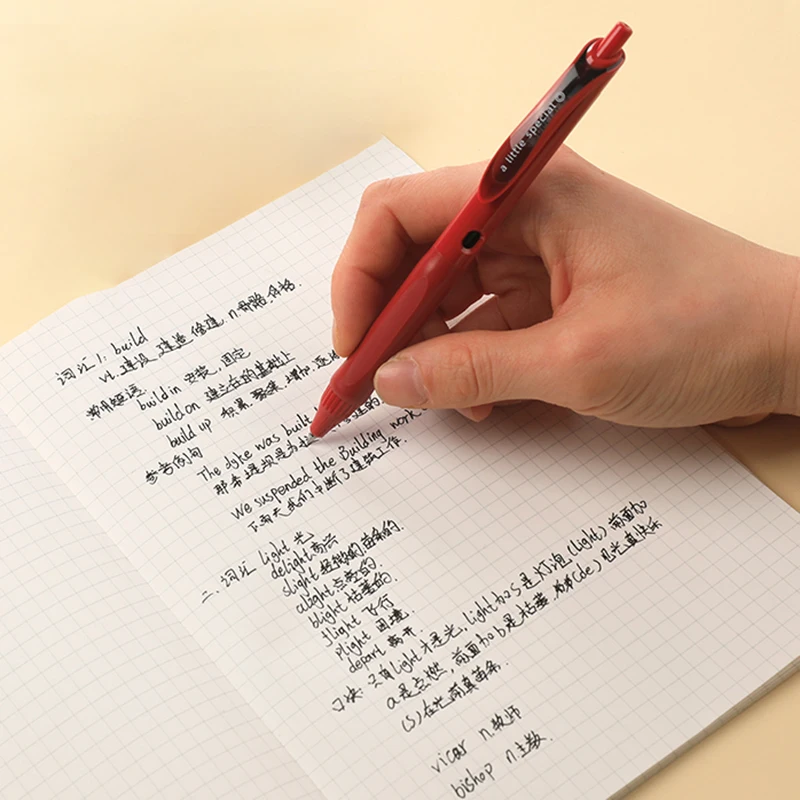 a little special
词汇1. build
vt. 建设 建造 修建 n. 骨骼.身格.
常用短语 build in 安装, 固定
build on 建立在的基础上
build up 积累. 聚集. 增加. 逐
参考例句 The dyke was built
那希堤坝是为
We suspended the Building work
下雨天我们中断了建筑工作.
二. 词汇 light 光
delight 高兴
slight 轻微的 苗条的.
alight 点亮的.
blight 枯萎的.
flight 飞行
plight 困境.
depart 离开
口诀: 只有light才是光. light
是灯泡(light) 前面加
a是点燃, 前面加b是枯萎 (de) 见光真快乐
(s) 在光前真苗条.
vicar n. 教师
bishop n. 主教.